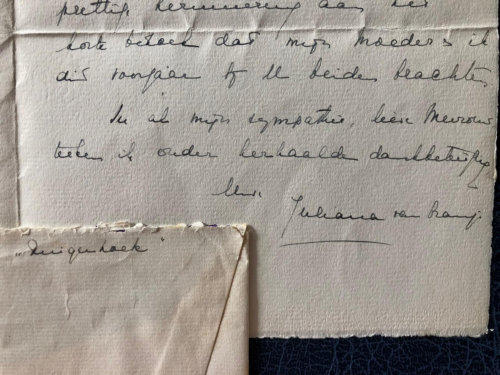 prettige herinnering aan het
korte bezoek dat mijn Moeder & ik
dit voorjaar bij U beiden brachten
In al mijn sympathie, lieve Mevrouw
teken ik onder herhaalde dankbetuiging
Uw
Juliana van Oranje
"Duigenhoek"